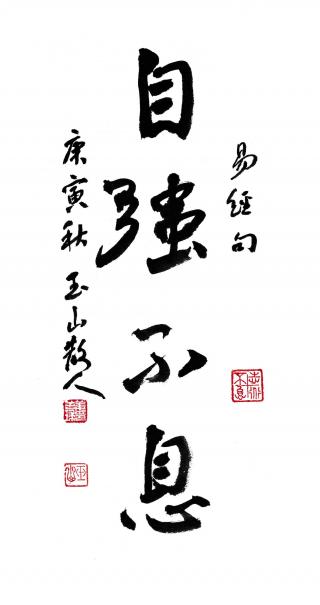 易經句
自強不息
庚寅秋玉山散人